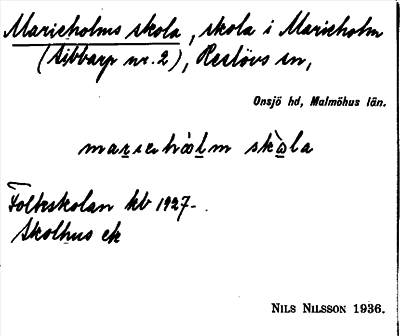 Marieholms skola, skola i Marieholm
(Sibbarp nr. 2), Reslövs sn,
Onsjö hd, Malmöhus län.
marieholm skola
Folkskolan kb 1927-.
Skolhus ek
NILS NILSSON 1936.